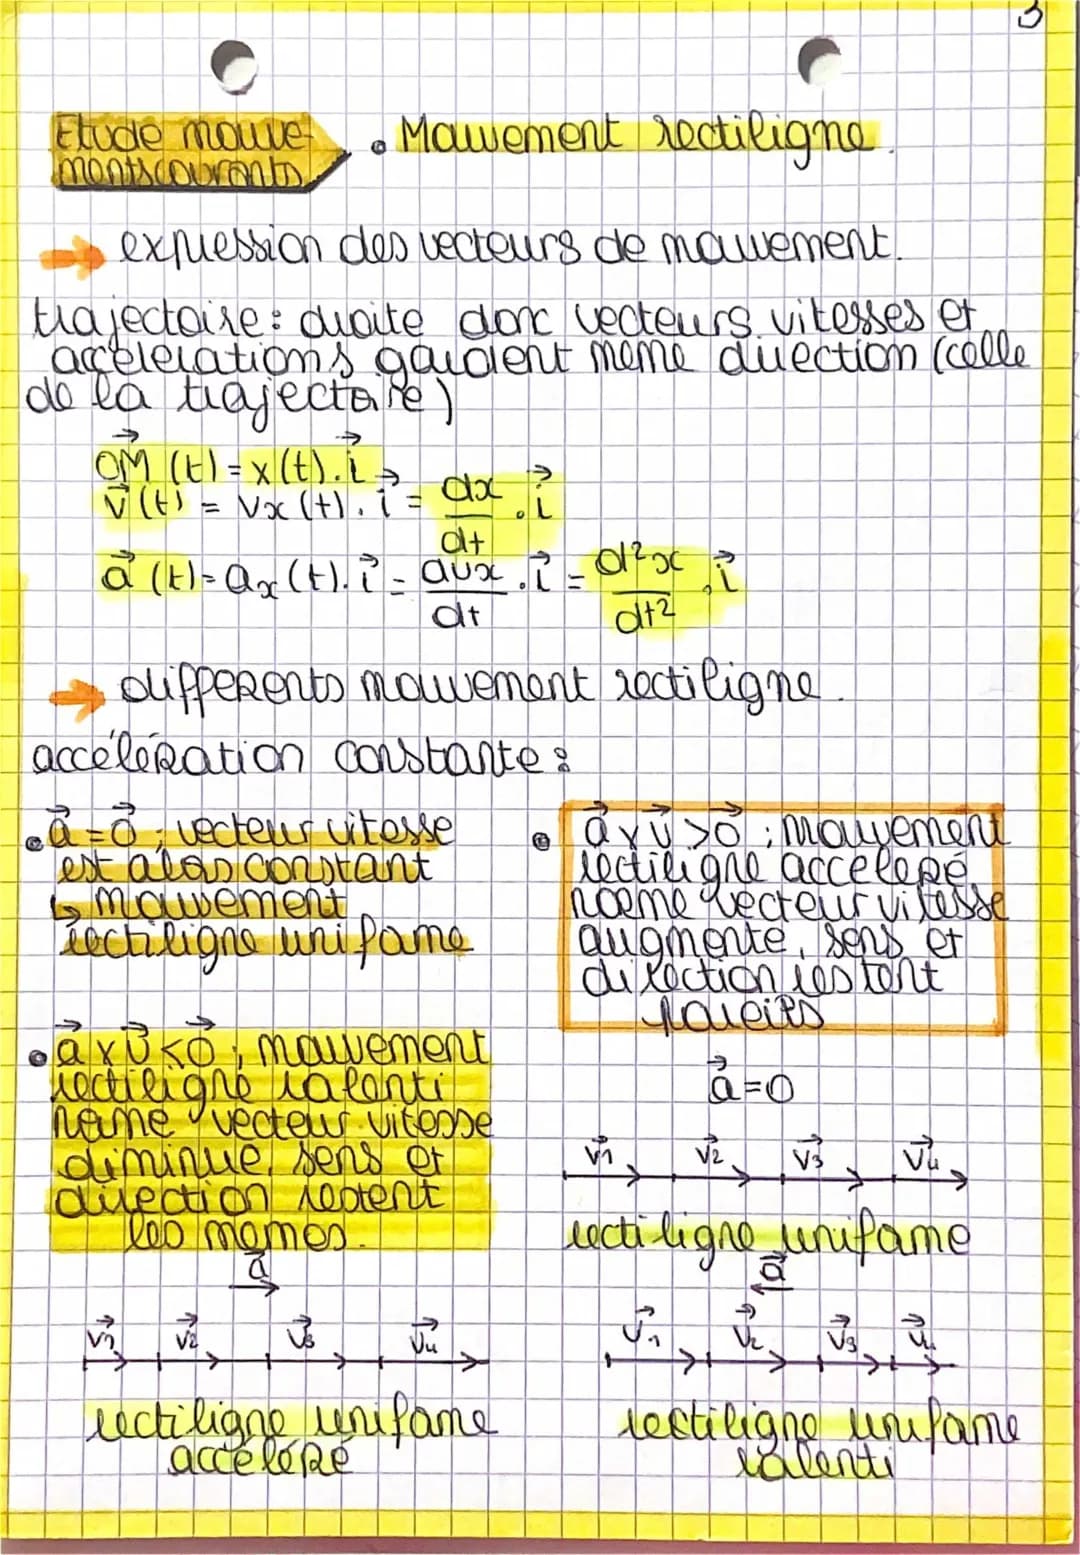 3
Etude mouve-
ments courants
• Mouvement rectiligne.
→ expression des vecteurs de mouvement.
trajectoire : droite donc vecteurs vitesses et
accélérations gardent meme direction (celle
de la trajectoire)
O͞M⃗ (t) = x(t).i⃗
v⃗(t) = vx(t).i⃗ = dx/dt . i⃗
a⃗(t) = ax(t).i⃗ = dvx/dt . i⃗ = d²x/dt² . i⃗
→ differents mouvement rectiligne.
accélération constante :
• a⃗ = 0⃗ ; vecteur vitesse
est alors constant
↳ mouvement
rectiligne uniforme
• a⃗ x v⃗ > 0⃗ ; mouvement
rectiligne acceleré
norme vecteur vitesse
augmente, sens et
direction restent
pareils
• a⃗ x v⃗ < 0⃗ ; mouvement
rectiligne ralenti
norme vecteur vitesse
diminue, sens et
direction restent
les memes.
a⃗ = 0
v⃗1 v⃗2 v⃗3 v⃗4
rectiligne uniforme
a⃗
v⃗1 v⃗2 v⃗3 v⃗4
rectiligne uniforme
accéléré
a⃗
v⃗1 v⃗2 v⃗3 v⃗4
rectiligne uniforme
ralenti